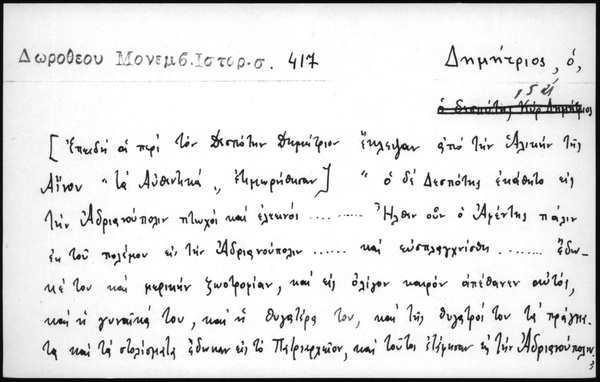 Δωροθεου Μονεμβ. Ιστορ. σ. 417
Δημήτριος, ὁ,
ὁ δεσπότης Κύρ Δημήτριος
[Ἐπειδή οἱ περί τόν Δεσπότην Δημήτριον ἔκλεψαν ἀπό τήν Ἁλικήν τῆς
Αἴνου "τά Αὐθεντικά", ἐτιμωρήθησαν] "ὁ δέ Δεσπότης ἐκάθητο εἰς
τήν Ἀδριανούπολιν πτωχός καί ἐλεεινός ........ Ἦλθεν οὖν ὁ Ἀφέντης πάλιν
ἐκ τοῦ πολέμου εἰς τήν Ἀδριανούπολιν ...... καί εὐσπλαγχνίσθη ....... ἔδω-
κέ του καί μερικήν ζωοτροφίαν, καί εἰς ὀλίγον καιρόν ἀπέθανεν αὐτός,
καί ἡ γυναῖκά του, καί ἡ θυγατέρα του, καί τῆς θυγατρός του τά πράγμα-
τα καί τά στολίσματα ἔδωκαν εἰς τό Πατριαρχεῖον, καί τούτους ἐτίμησαν εἰς τήν Ἀδριανούπολιν.